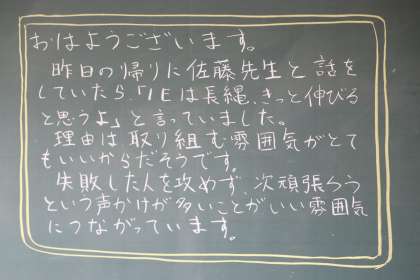 おはようございます。
昨日の帰りに佐藤先生と話を
していたら、「1Eは長縄、きっと伸びる
と思うよ」と言っていました。
理由は取り組む雰囲気がとて
もいいからだそうです。
失敗した人を攻めず、次頑張ろう
という声かけが多いことがいい雰囲気
につながっています。